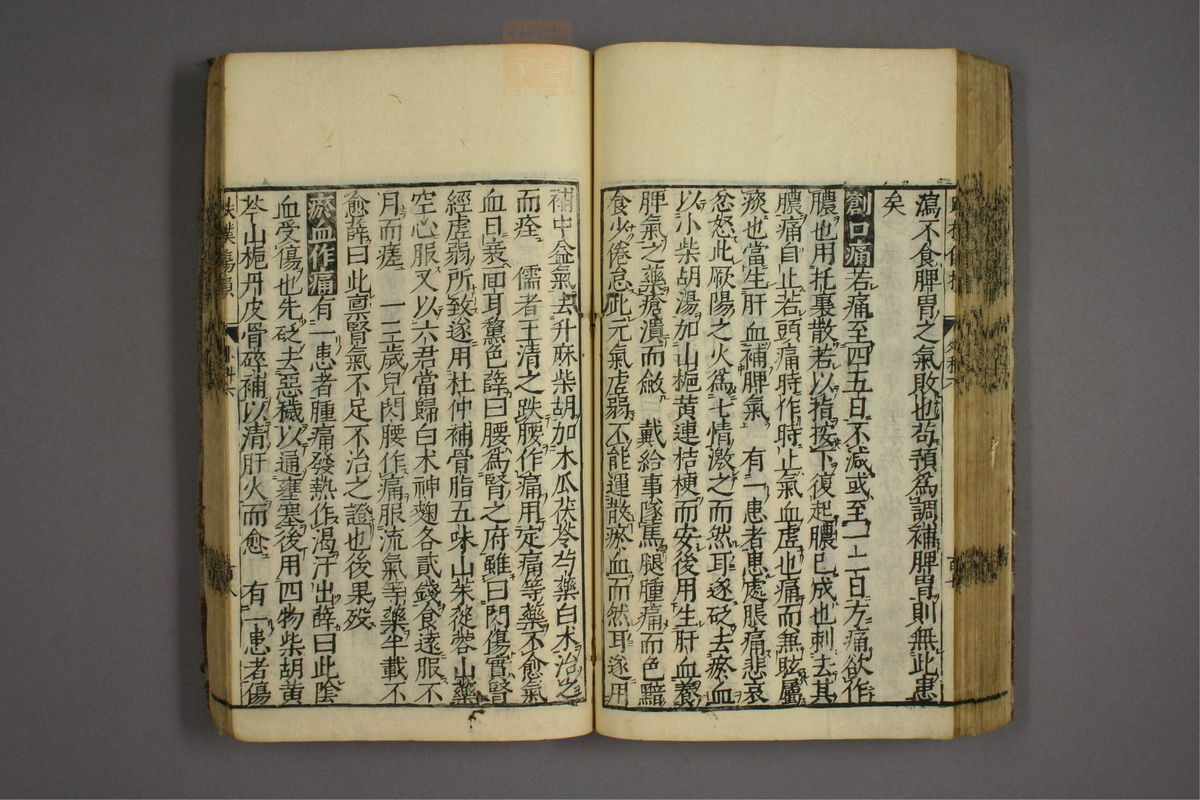 瀉不食脾胃之氣敗也苟預爲調補脾胃則無此患
矣
創口痛若痛至四五日不減或至一二日方痛欲作
膿也用托裏散若以指按下復起膿已成也刺去其
膿痛自止若頭痛時作時止氣血虛也痛而兼眩屬
痰也當生肝血補脾氣 有一患者患處脹痛悲哀
忿怒此厥陽之火爲七情激之而然耳遂砭去瘀血
以小柴胡湯加山梔黃連桔梗而安後用生肝血養
脾氣之藥瘡潰而斂 戴給事墜馬腿腫痛而色黯
食少倦怠此元氣虛弱不能運散瘀血而然耳遂用
補中益氣去升麻柴胡加木瓜茯苓芍藥白朮治之
而痊 儒者王清之跌腰作痛用定痛等藥不愈氣
血日衰面耳黧色薛曰腰爲腎之府雖曰閃傷實腎
經虛弱所致遂用杜仲補骨脂五味山茱蓯蓉山藥
空心服又以六君當歸白朮神麴各貳錢食遠服不
月而瘥 一三歲兒閃腰作痛服流氣等藥半載不
愈薛曰此稟腎氣不足不治之證也後果歿
瘀血作痛有一患者腫痛發熱作渴汗出薛曰此陰
血受傷也先砭去惡穢以通壅塞後用四物柴胡黃
芩山梔丹皮骨碎補以清肝火而愈 有一患者傷
跌撲傷損